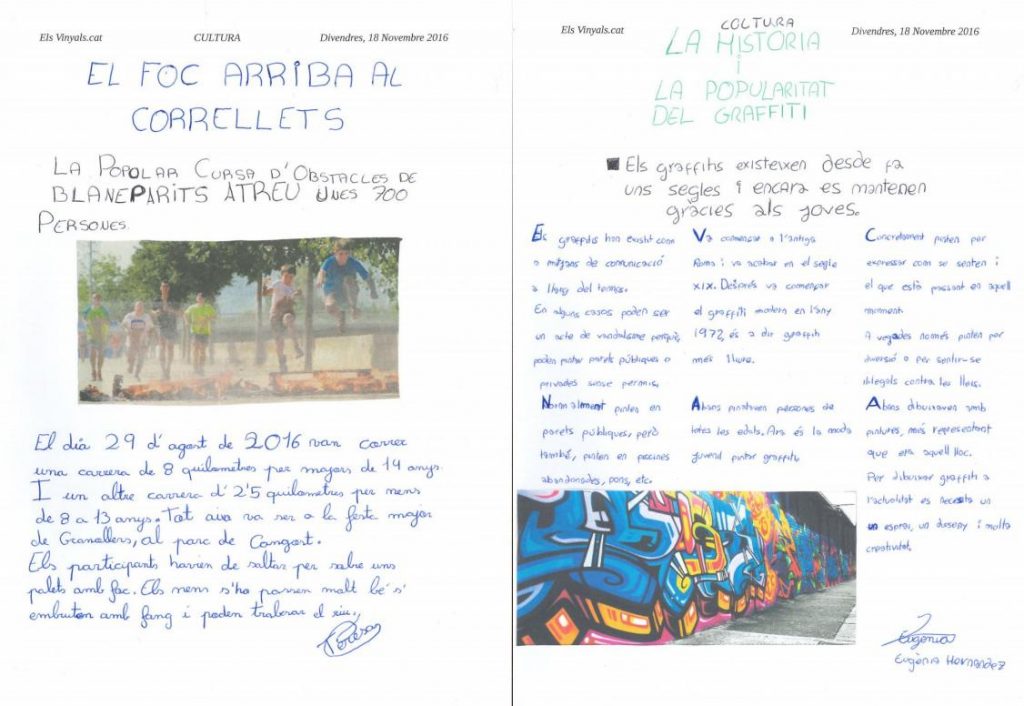 Els Vinyals.cat CULTURA Divendres, 18 Novembre 2016
EL FOC ARRIBA AL
CORRELLETS
LA POPOLAR CURSA D'OBSTACLES DE
BLANEPARITS ATREU UNES 700
PERSONES
El día 29 d'agost de 2016 van correr
una carrera de 8 quilometres per majors de 14 anys.
I un altre carrera d' 2'5 quilometres per nens
de 8 a 13 anys. Tot aixa va ser a la festa major
de Granollers, al parc de Cangort.
Els participants havien de saltar per sobre uns
palets amb foc. Els nens s'ho passen molt bé s'
embruten amb fang i poden traberar el riu.
Els Vinyals.cat COLTURA Divendres, 18 Novembre 2016
LA HISTORIA
i
LA POPULARITAT
DEL GRAFFITI
Els graffitis existeixen desde fa
uns segles i encara es mantenen
gràcies als joves.
Els graffitis han existit com
a mitjans de comunicació
a llarg del temps.
En alguns casos poden ser
un acte de vandalisme perquè,
poden pintar parets públiques o
privades sense permís.
Normalment pinten en
parets públiques, però
també, pinten en piscines
abandonades, pons, etc.
Va començar a l'antiga
Roma i va acabar en el segle
XIX. Després va començar
el graffiti modern en l'any
1972, és a dir graffiti
més lliure.
Abans pinataven persones de
totes les edats. Ara és la moda
juvenil pintar graffitis.
Concretament pinten per
expressar com se senten i
el que està passant en aquell
moment.
A vegades només pinten per
diversió o per sentir-se
il·legals contra les lleis.
Abans dibuixaven amb
pintures, més representant
que era aquell lloc.
Per dibuixar graffitis a
l'actualitat es necesita un
un esprai, un disseny i molta
creativitat.
Eugènia
Eugènia Hernandez